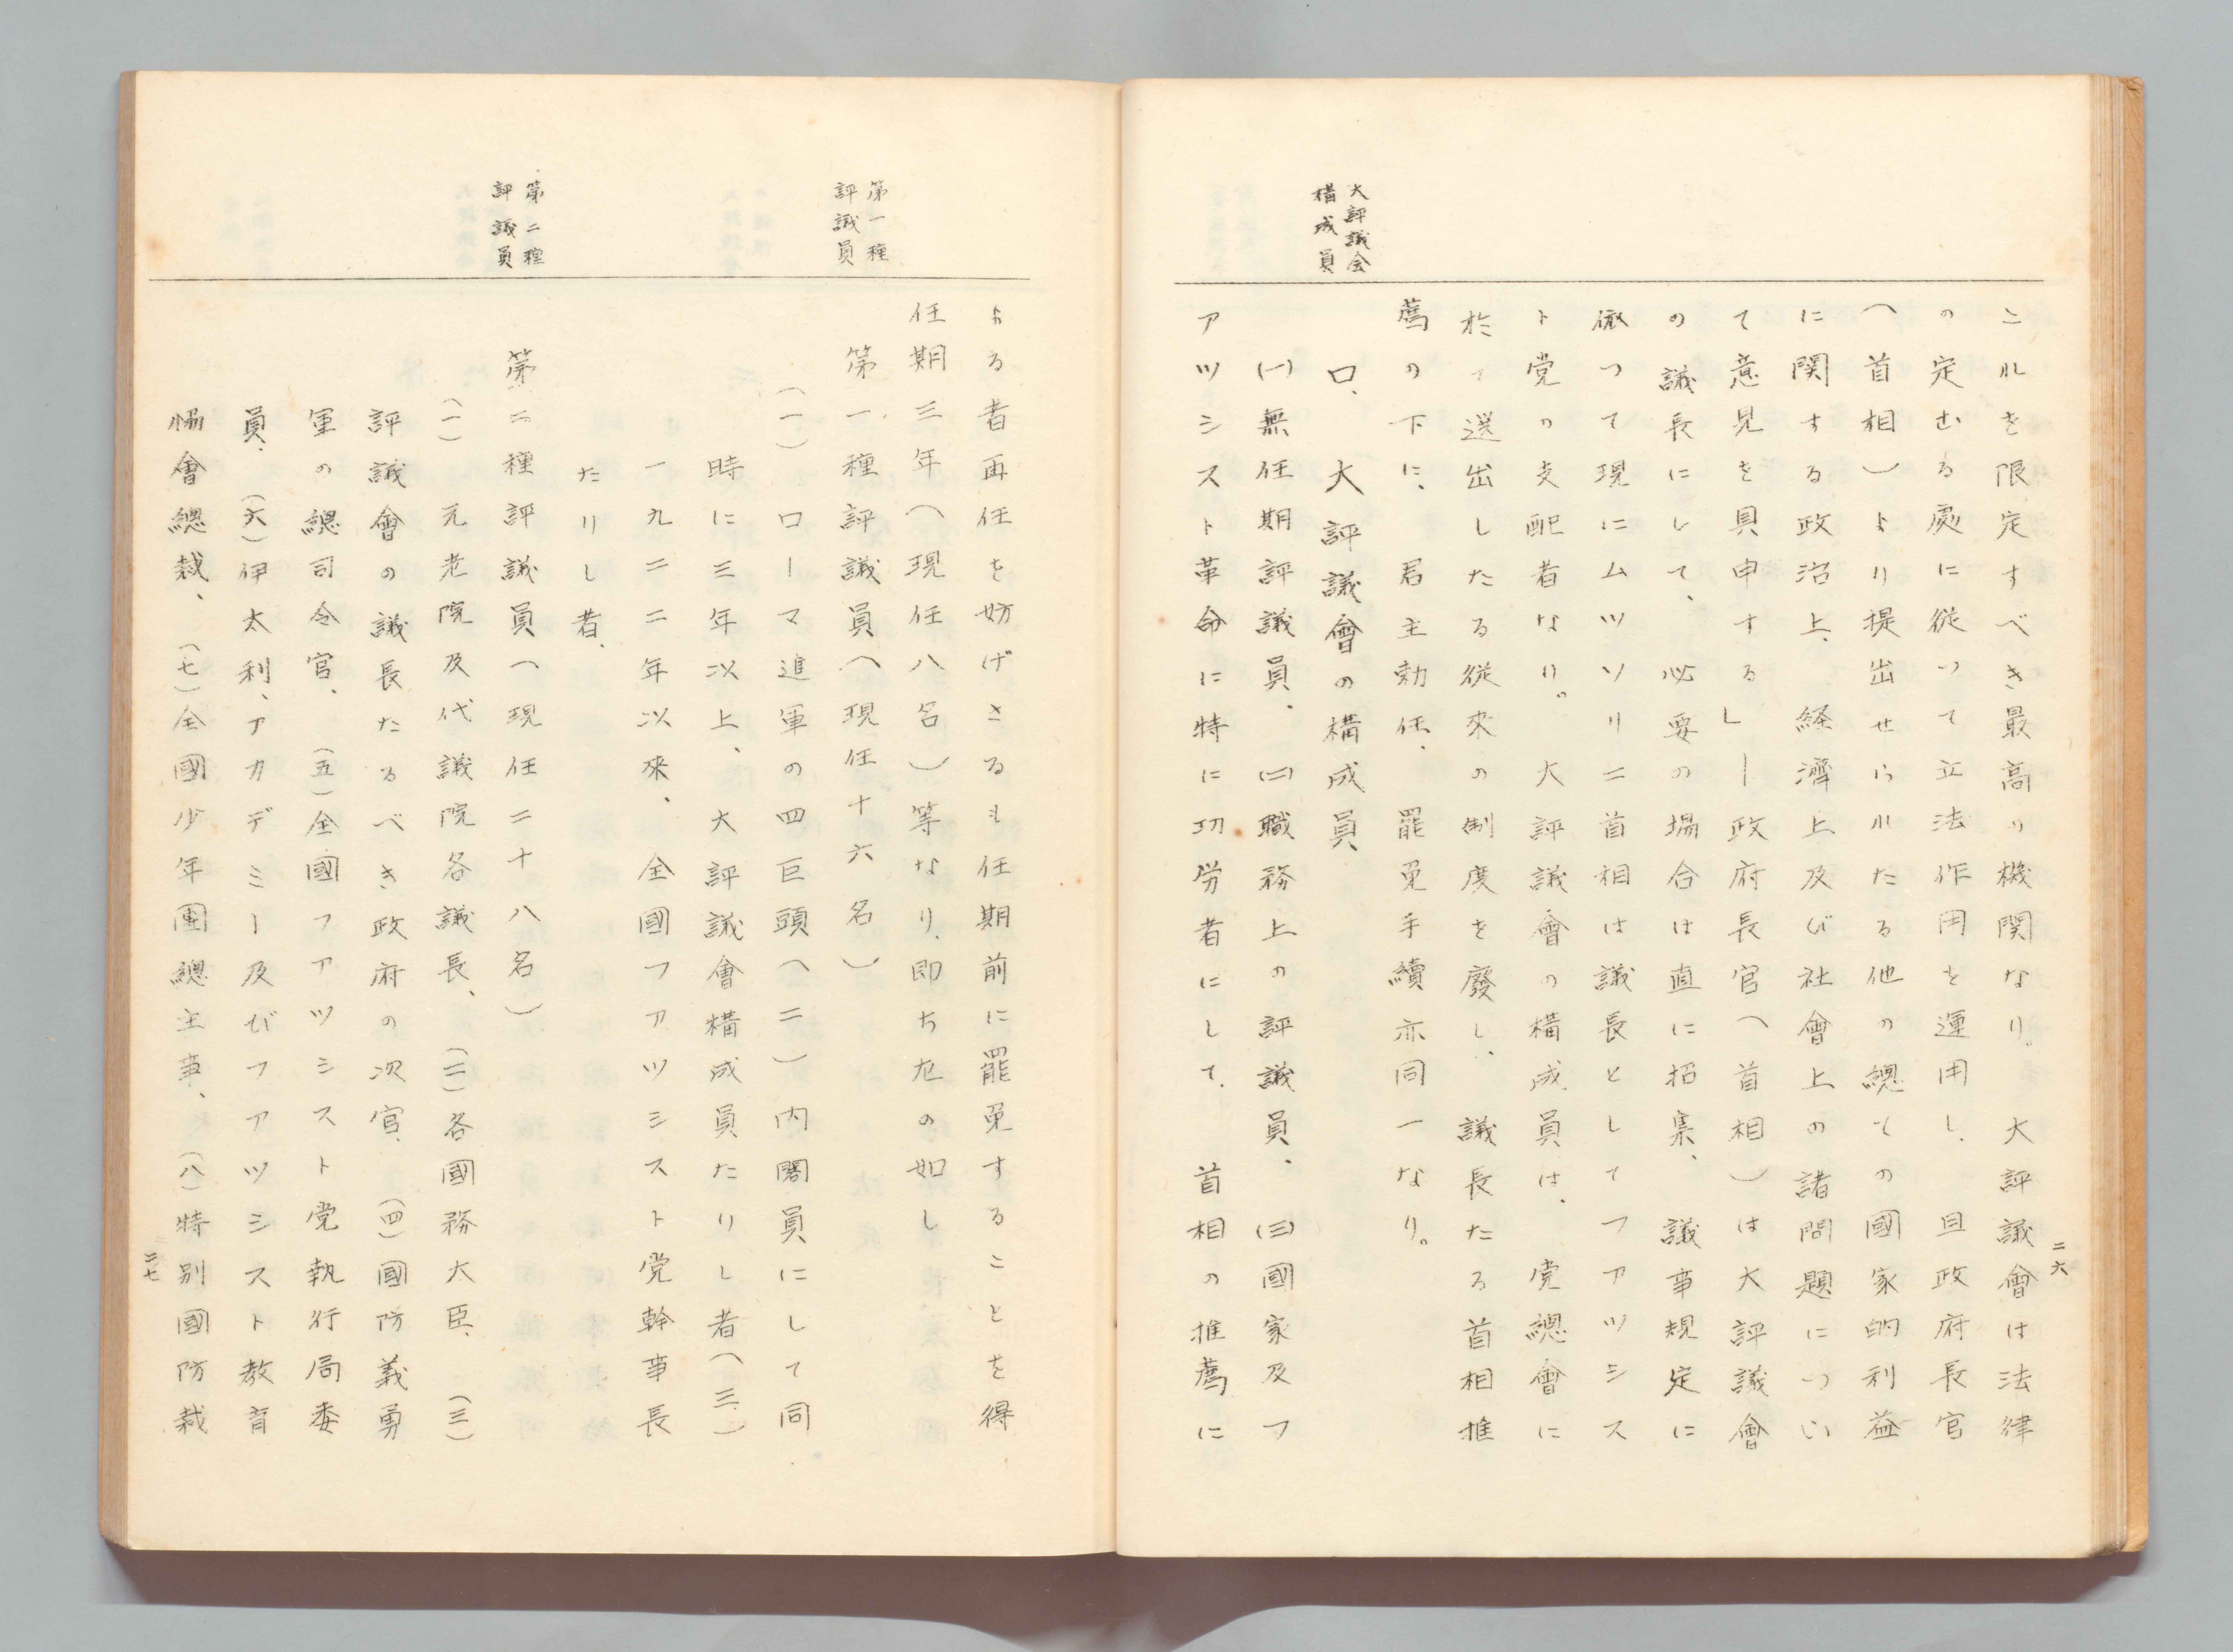 二六
これを限定すべき最高の機関なり。大評議會は法律
の定むる處に従つて立法作用を運用し、且政府長官
（首相）より提出せられたる他の總ての國家的利益
に関する政治上、経濟上及び社會上の諸問題につい
て意見を具申する」―政府長官（首相）は大評議會
の議長にして、必要の場合は直に招集、議事規定に
依つて現にムツソリニ首相は議長としてフアツシス
ト党の支配者なり。大評議會の構成員は、党總會に
於て選出したる従來の制度を廢し、議長たる首相推
薦の下に、君主勅任、罷免手續亦同一なり。
大評議会
構成員
ロ、大評議會の構成員
(一)無任期評議員、(二)職務上の評議員、(三)國家及フ
アツシスト革命に特に功労者にして、首相の推薦に
よる者再任を妨げさるも任期前に罷免することを得
任期三年（現任八名）等なり、即ち左の如し
第一種
評議員
第一種評議員（現任十六名）
(一)ローマ進軍の四巨頭（二）内閣員にして同
時に三年以上、大評議會構成員たりし者（三）
一九二二年以來、全國フアツシスト党幹事長
たりし者、
第二種
評議員
第二種評議員（現任二十八名）
(一)元老院及代議院各議長、(二)各國務大臣、(三)
評議會の議長たるべき政府の次官、(四)國防義勇
軍の總司令官、(五)全國フアツシスト党執行局委
員、(六)伊太利、アカデミー及びフアツシスト教育
協會總裁、(七)全國少年團總主事、(八)特別國防裁
二七